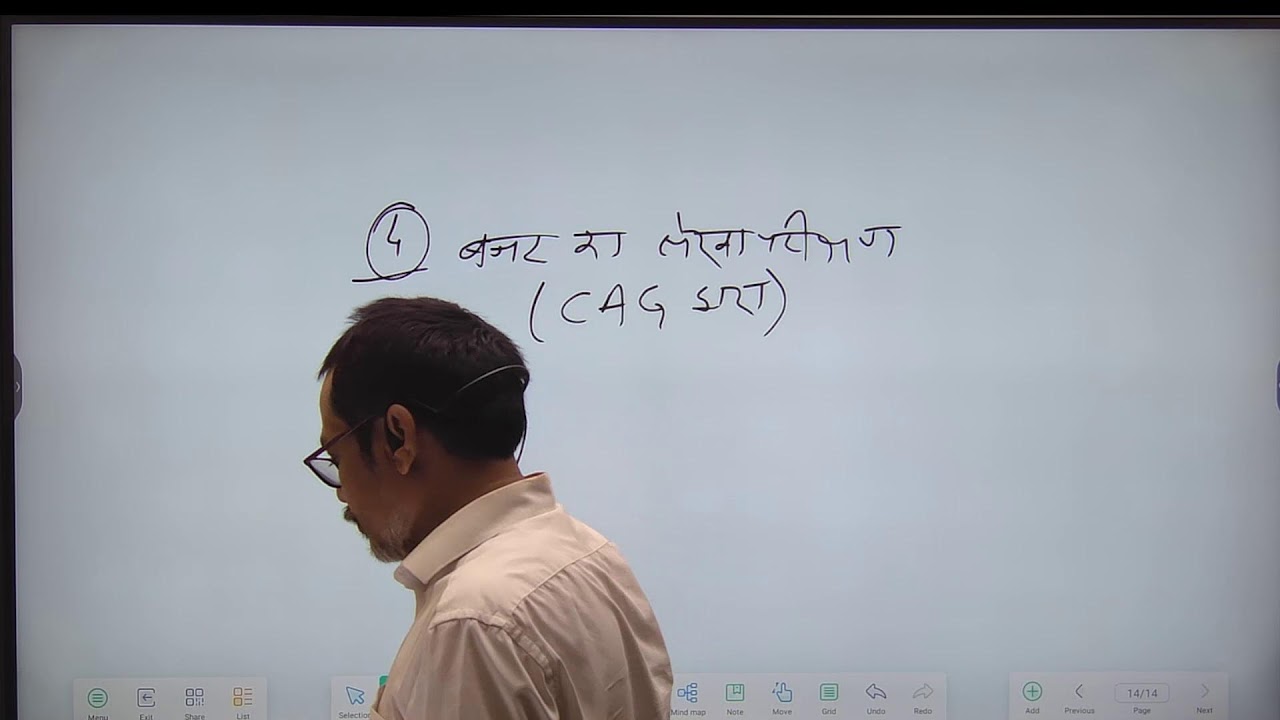 4 बजट का लेखा परीक्षण
(CAG द्वारा)
Menu Exit Share List Selection Mind map Note Move Grid Undo Redo Add Previous 14/14 Page Next